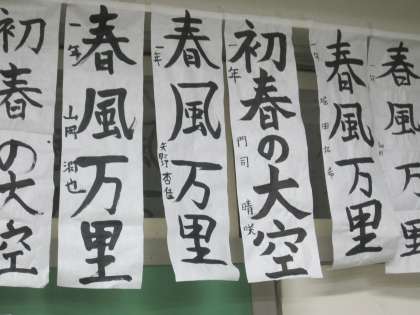 初春の大空
春風万里
一年
山岡
也
春風万里
一年
矢野杏佳
初春の大空
一年
門司 晴咲
春風万里
一年
春風万里
一年